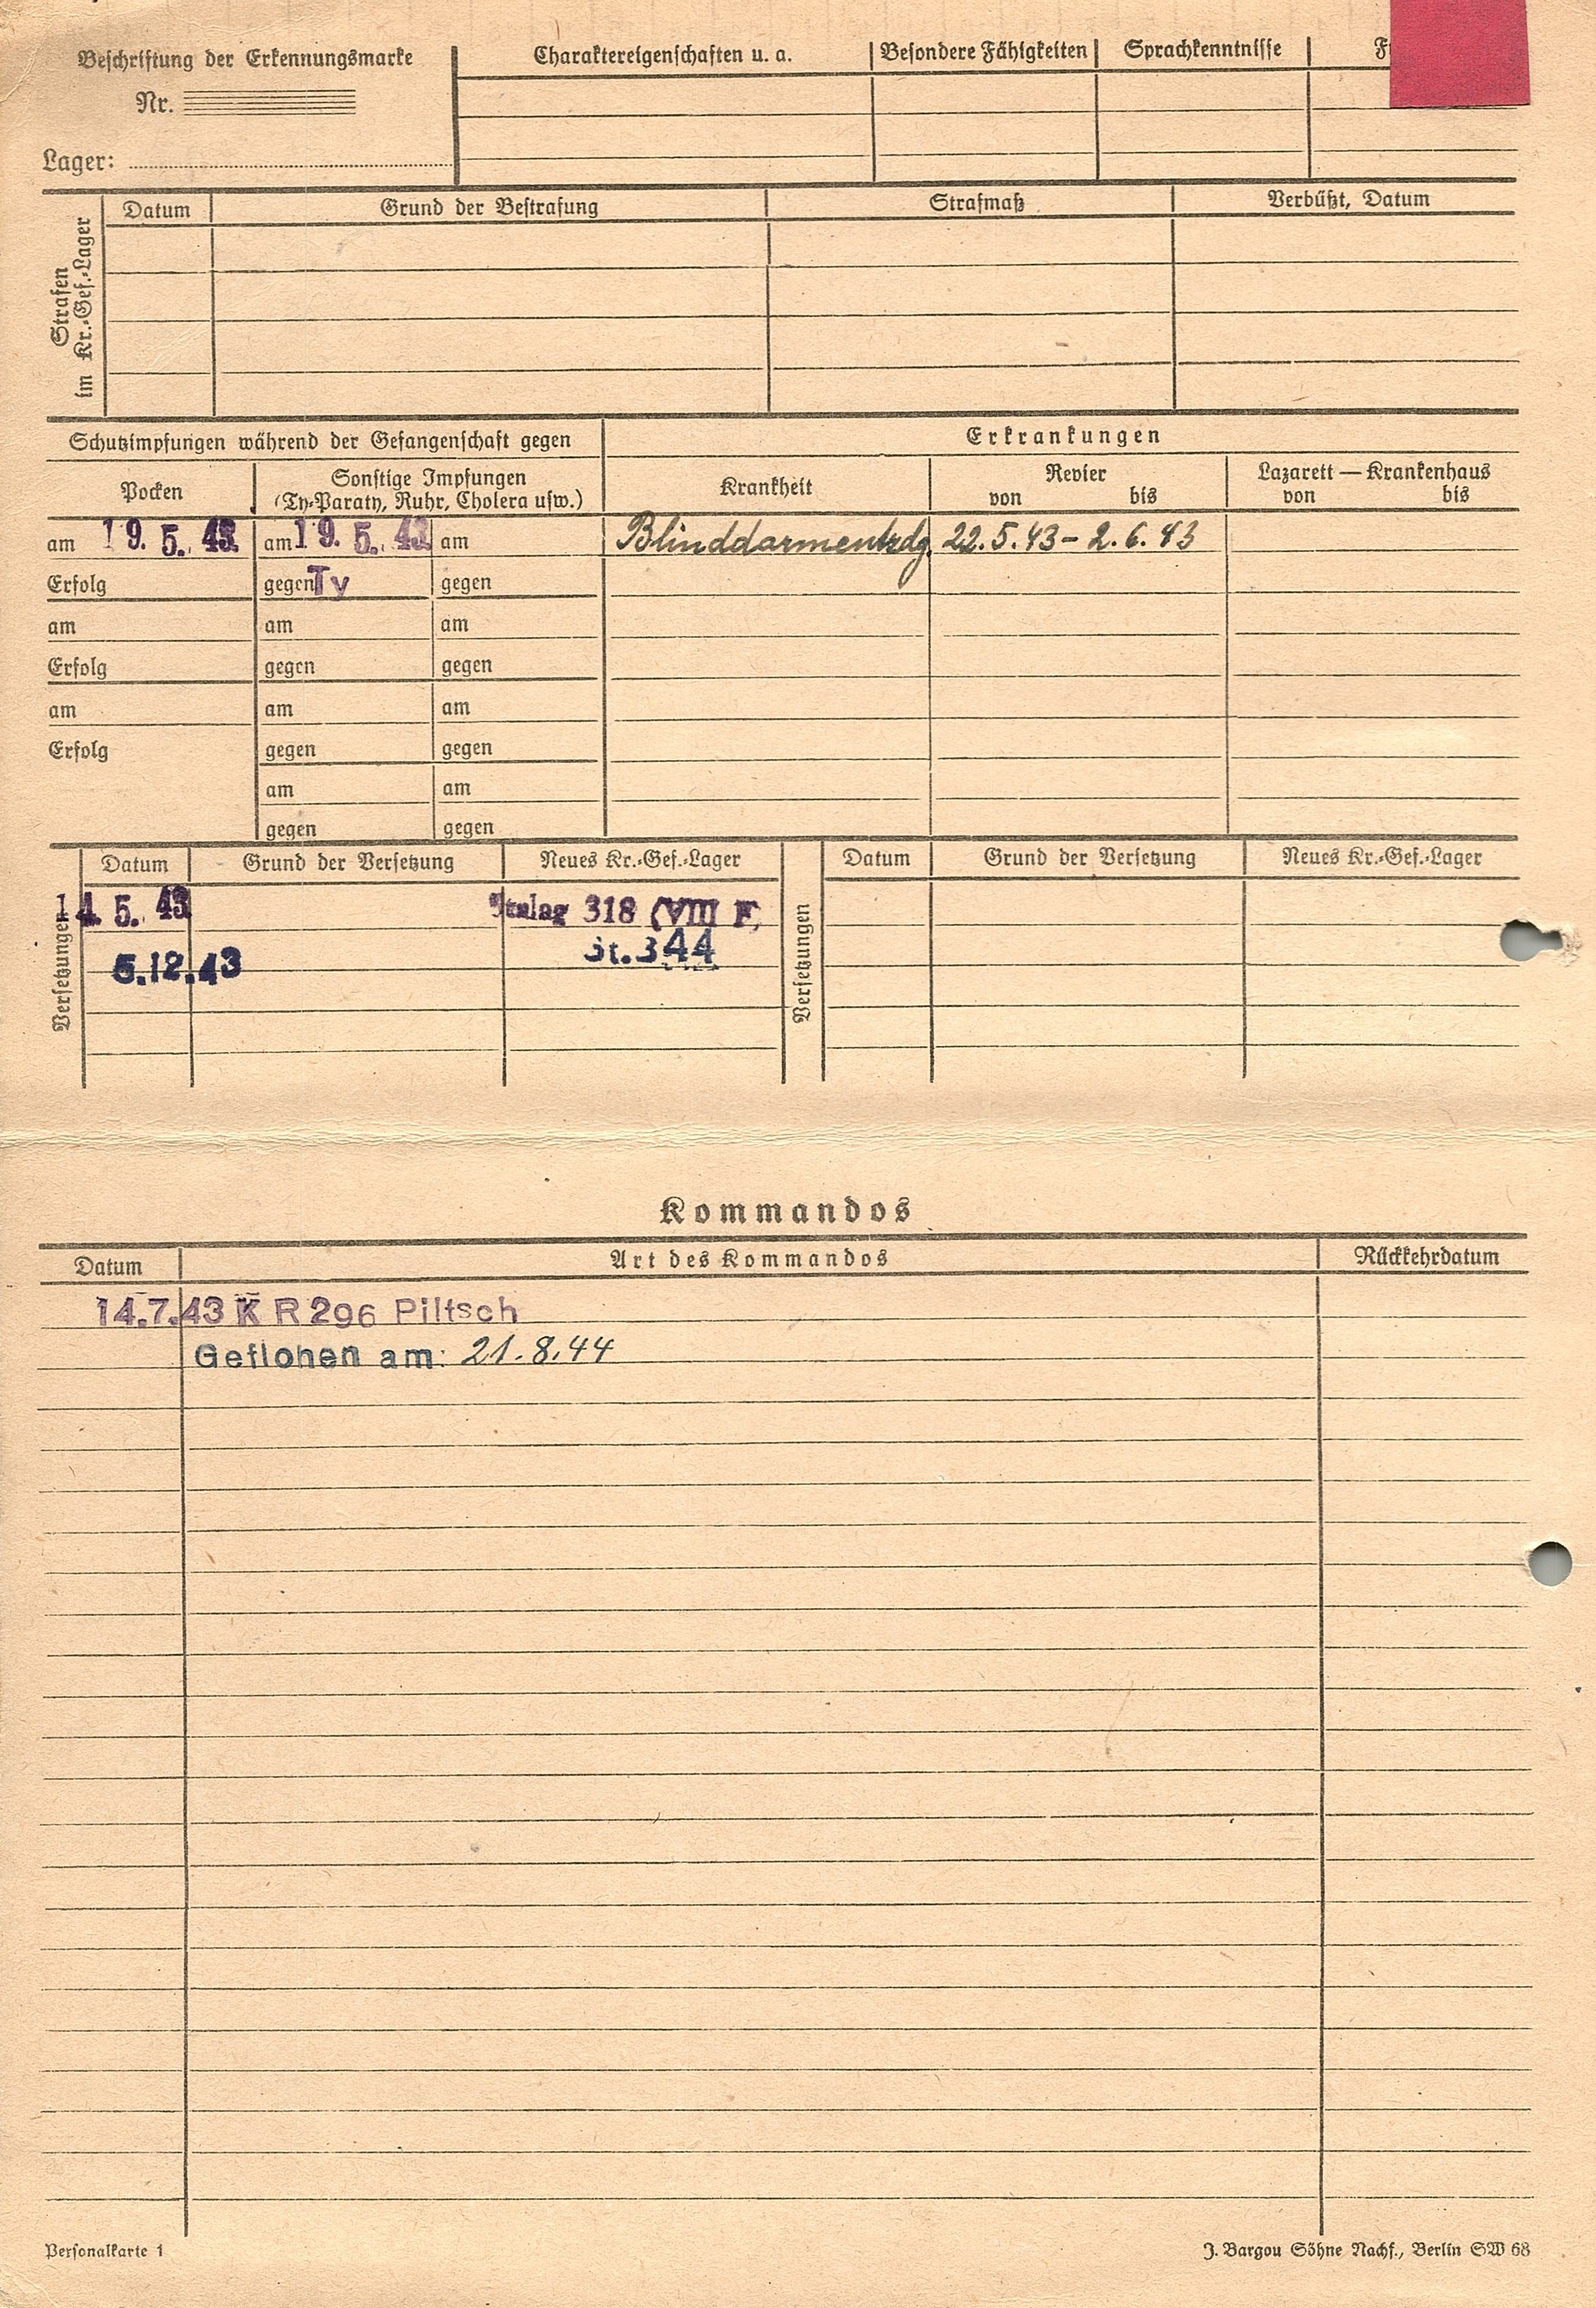 Beschriftung der Erkennungsmarke
Nr.
Lager:
Charaktereigenschaften u. a.
Besondere Fähigkeiten
Sprachkenntnisse
F
Strafen
im Kr.-Gef.-Lager
Datum
Grund der Bestrafung
Strafmaß
Verbüßt, Datum
Schutzimpfungen während der Gefangenschaft gegen
Erkrankungen
Pocken
Sonstige Impfungen
(Ty-Paraty, Ruhr, Cholera usw.)
Krankheit
Revier
von bis
Lazarett — Krankenhaus
von bis
am 19. 5. 43 am 19. 5. 43 am
Blinddarmentzdg. 22.5.43 - 2.6.43
Erfolg gegen Ty gegen
am am am
Erfolg gegen gegen
am am am
Erfolg gegen gegen
am am
gegen gegen
Versetzungen
Datum Grund der Versetzung Neues Kr.-Gef.-Lager
14. 5. 43 Stalag 318 (VIII F)
5.12.43 St. 344
Versetzungen
Datum Grund der Versetzung Neues Kr.-Gef.-Lager
Kommandos
Datum Art des Kommandos Rückkehrdatum
14.7.43 K R 296 Piltsch
Geflohen am: 21.8.44
Personalkarte 1
J. Bargou Söhne Nachf., Berlin SW 68